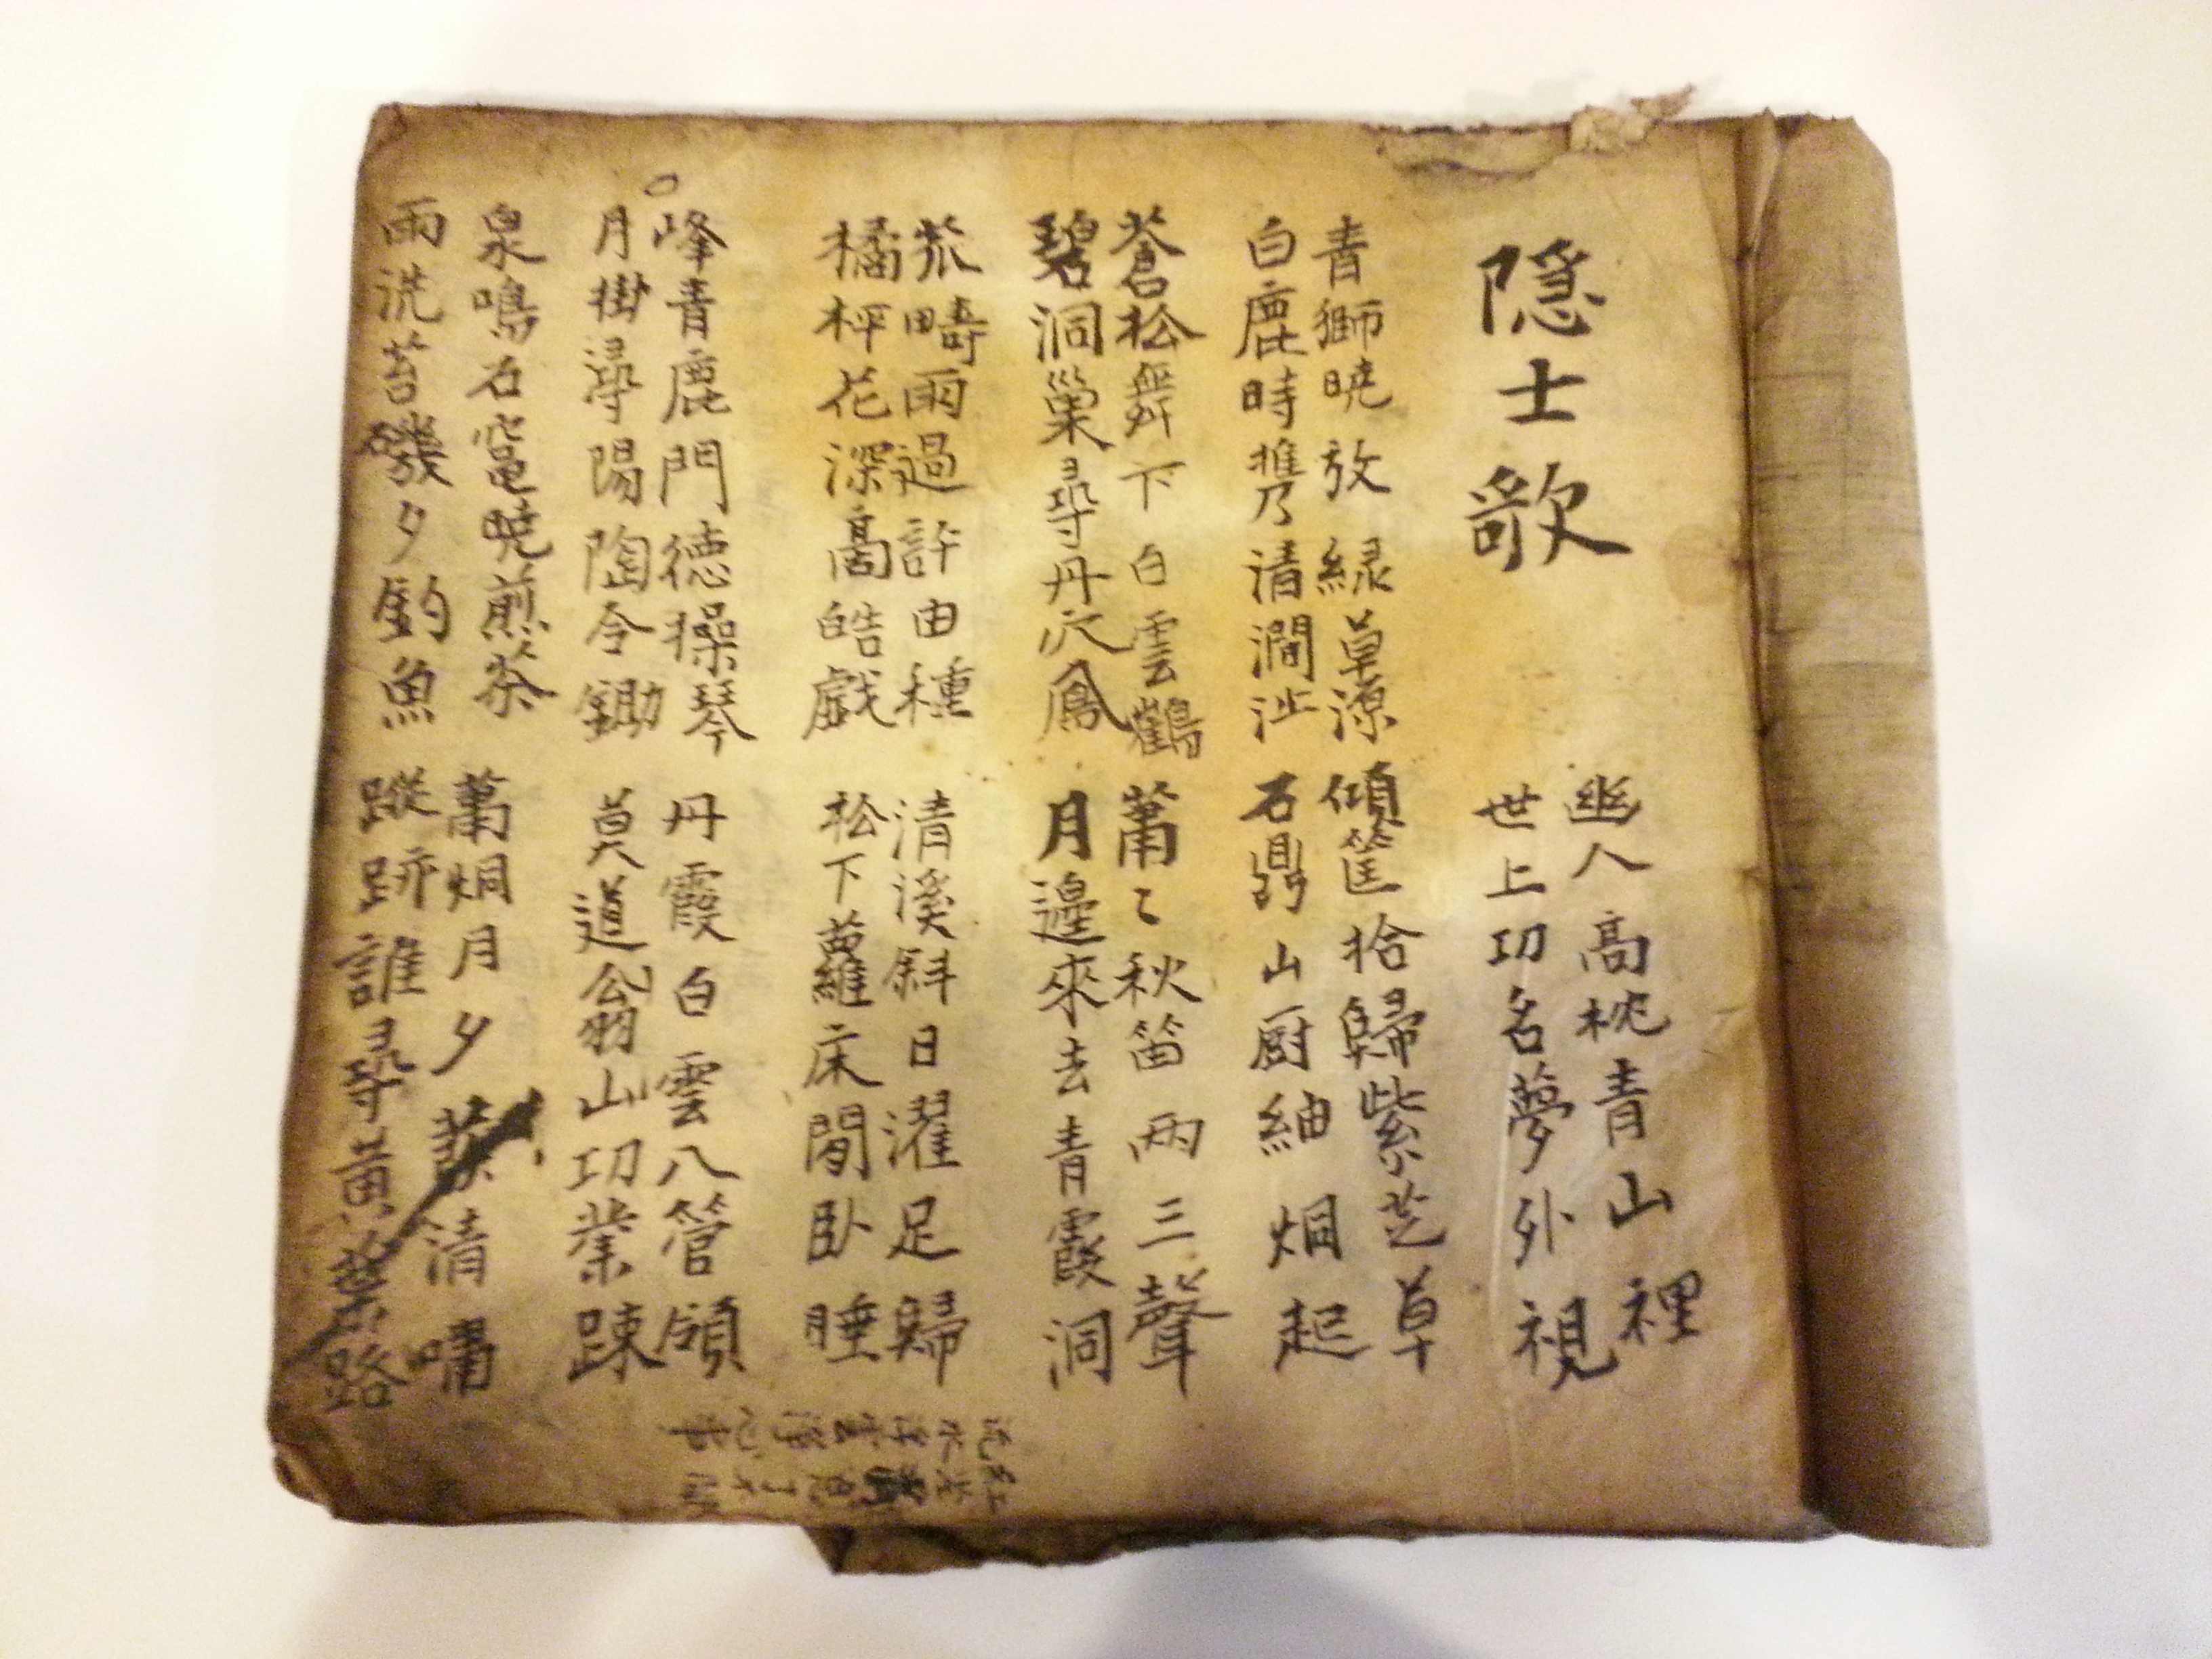 隠士歌
幽人高枕青山裡
世上功名夢外視
青獅曉放緑草源
白鹿時携清澗沚
傾筐拾歸紫芝草
石鼎山厨紬烟起
蒼松舞下白雲鶴
碧洞巢尋丹穴鳳
蕭〻秋笛兩三聲
月邊來去青霞洞
畴雨過許由種
橘枰花深高皓戯
清溪斜日濯足歸
松下蘿床閒臥睡
峰青鹿門德操琴
月掛潯陽陶令鋤
丹霞白雲八管領
莫道翁山功業踈
泉鳴石竈曉煎茶
雨洗苔磯夕釣魚
蕭烟月夕清嘯
蹤跡誰尋黃葉路